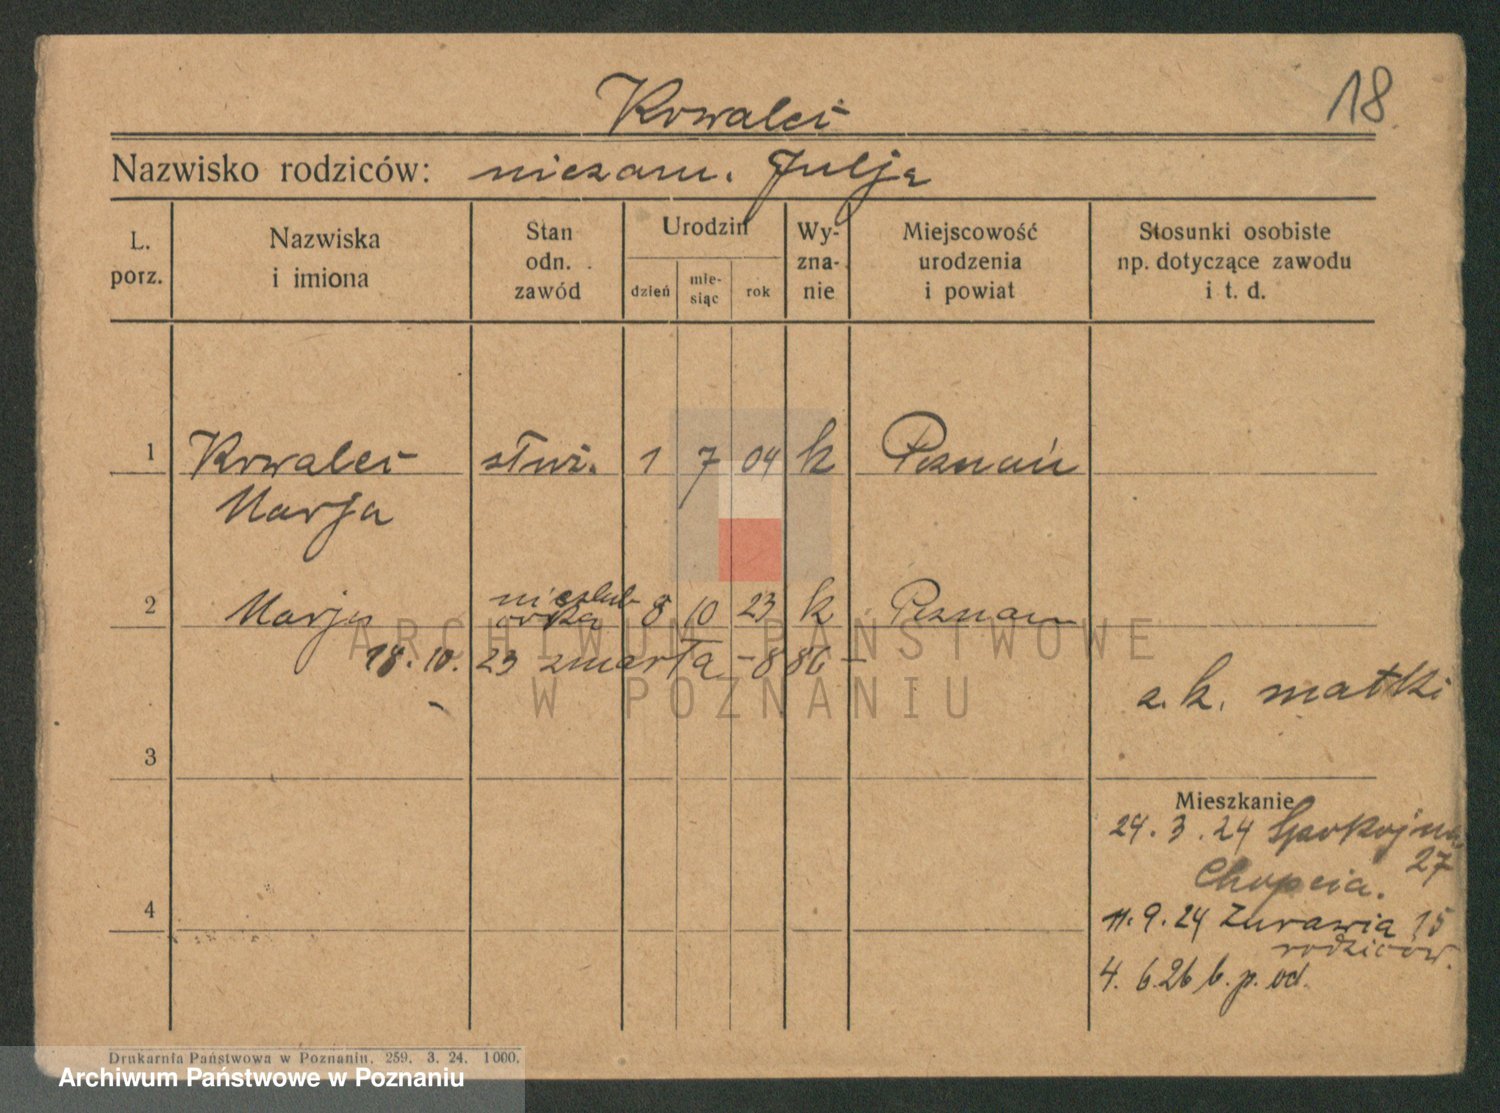 18
Kowalci
Nazwisko rodziców: niezam. Julja
L. porz.
Nazwiska i imiona
Stan odn. zawód
Urodzin
dzień
mie-siąc
rok
Wy-zna-nie
Miejscowość urodzenia i powiat
Stosunki osobiste np. dotyczące zawodu i t. d.
1 Kowalci służ. 1 7 04 k Poznań
Marja
2 Marja nieślub- 8 10 23 k Poznań
córka
18. 10. 23 zmarła - 886 -
a. k. matki
3
Mieszkanie
24. 3. 24
27
Chopcia.
4
11. 9. 24 Żurawia 15
rodziców.
4. 6. 26 b. p. od.
Drukarnia Państwowa w Poznaniu. 259. 3. 24. 1000.
ARCHIWUM PAŃSTWOWE
W POZNANIU
Archiwum Państwowe w Poznaniu